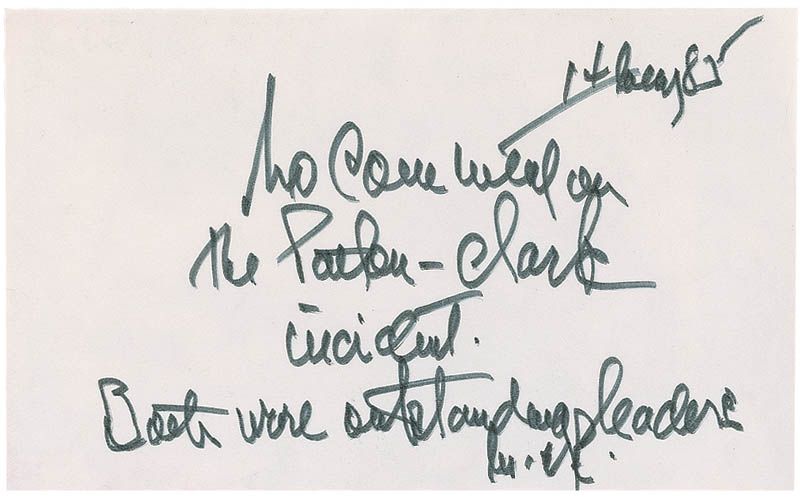 14 85
No Comment on
the Patton - Clark
incident.
Both were outstanding leaders